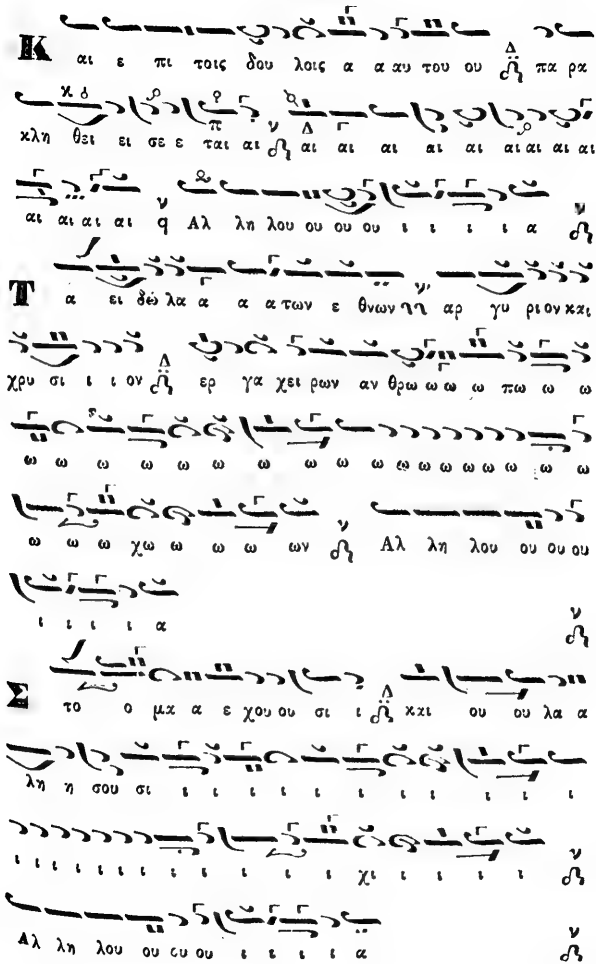 Κ αι ε πι τοις δου λοις α α αυ του ου Δ πα ρα
κλη θει ει σε ε ται αι ν αι αι αι αι αι αι αι αι αι
αι αι αι αι q Αλ λη λου ου ου ου ι ι ι ι α ν
Τ α ει δώ λα α α α των ε θνων αρ γυ ριον και
χρυ σι ι ι ον Δ ερ γα χει ρων αν θρω ω ω ω πω ω ω
ω ω ω ω ω ω ω ω ω ω ω ω ω ω ω ω ω ω ω
ω ω ω χω ω ω ω ων ν Αλ λη λου ου ου ου
ι ι ι ι α ν
Σ το ο μα α ε χου ου σι ι Δ και ου ου λα α
λη η σου σι ι ι ι ι ι ι ι ι ι ι ι
ι ι ι ι ι ι ι ι ι ι ι ι ι χι ι ι ι ι ν
Αλ λη λου ου ου ου ι ι ι ι α ν